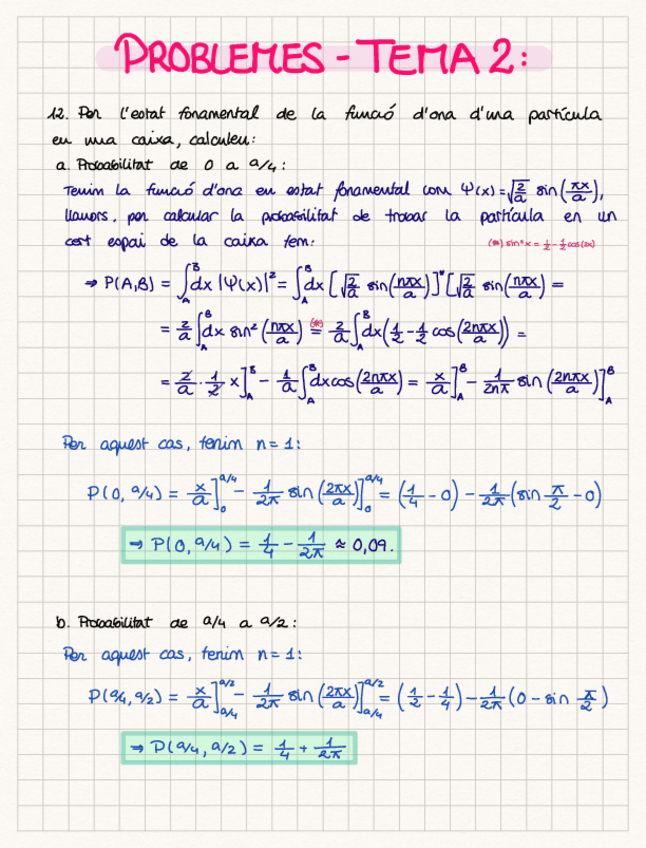 PROBLEMES - TEMA 2:
12. Per l'estat fonamental de la funció d'ona d'una partícula
en una caixa, calculeu:
a. Probabilitat de 0 a a/4:
Tenim la funció d'ona en estat fonamental com Ψ(x) = √(2/a) sin(πx/a),
llavors, per calcular la probabilitat de trobar la partícula en un
cert espai de la caixa fem:
(*) sin²x = 1/2 - 1/2 cos(2x)
⇒ P(A,B) = ∫_A^B dx |Ψ(x)|² = ∫_A^B dx [√(2/a) sin(nπx/a)]* [√(2/a) sin(nπx/a)] =
= 2/a ∫_A^B dx sin²(nπx/a) (*)= 2/a ∫_A^B dx (1/2 - 1/2 cos(2nπx/a)) =
= 2/a · 1/2 x]_A^B - 1/a ∫_A^B dx cos(2nπx/a) = x/a]_A^B - 1/2nπ sin(2nπx/a)]_A^B
Per aquest cas, tenim n = 1:
P(0, a/4) = x/a]_0^a/4 - 1/2π sin(2πx/a)]_0^a/4 = (1/4 - 0) - 1/2π (sin π/2 - 0)
⇒ P(0, a/4) = 1/4 - 1/2π ≈ 0,09.
b. Probabilitat de a/4 a a/2:
Per aquest cas, tenim n = 1:
P(a/4, a/2) = x/a]_a/4^a/2 - 1/2π sin(2πx/a)]_a/4^a/2 = (1/2 - 1/4) - 1/2π (0 - sin π/2)
⇒ P(a/4, a/2) = 1/4 + 1/2π